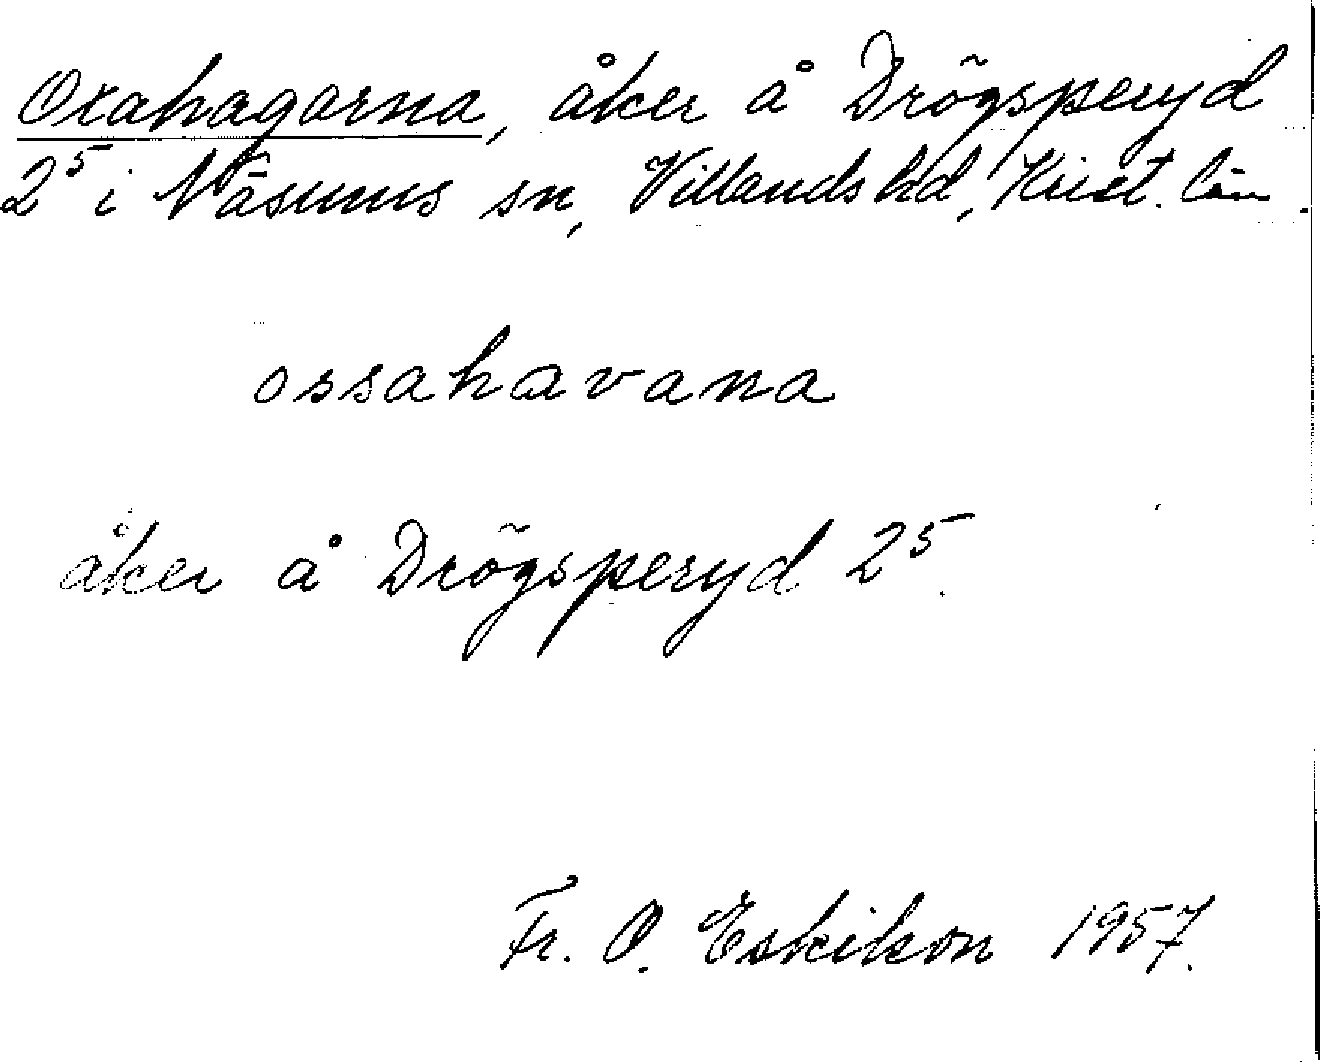 Oxahagarna, åker å Drögsperyd
2⁵ i Näsums sn, Villands hd, Krist. län.
ossahavana
åker å Drögsperyd 2⁵.
Fr. O. Eskilson 1957.